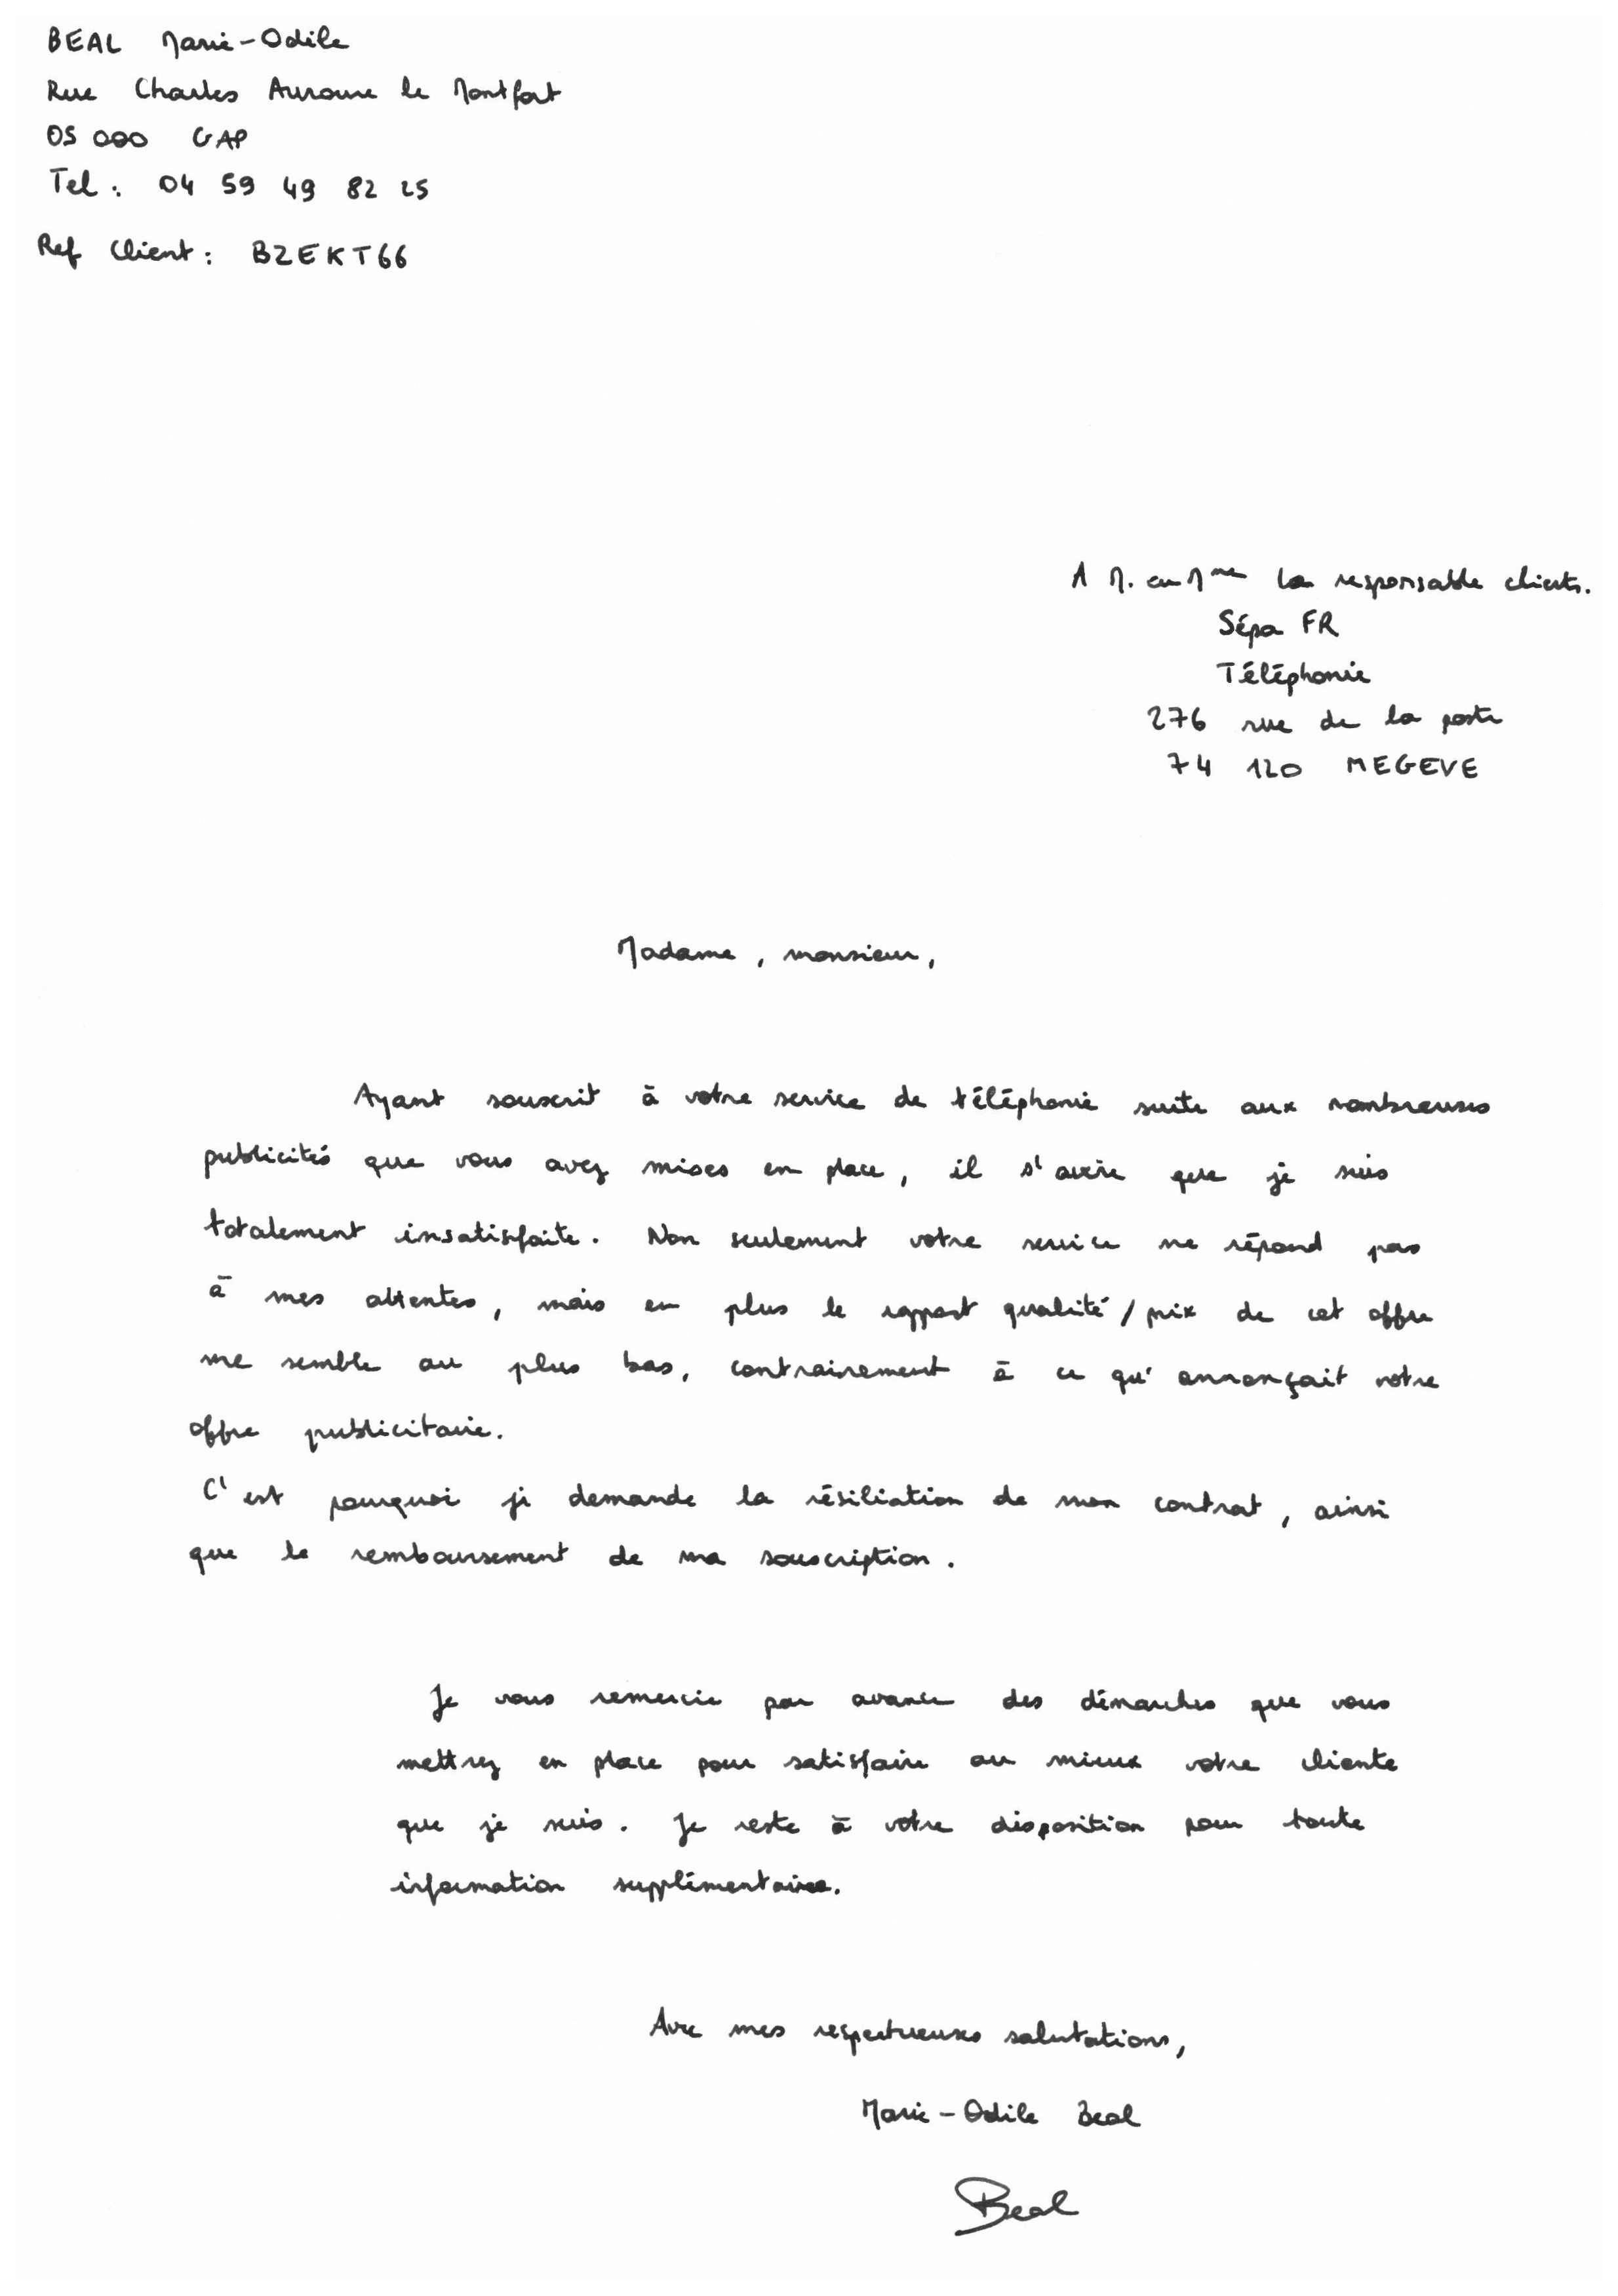 BEAL Marie-Odile
Rue Charles Aurouze le Montfort
05 000 GAP
Tel : 04 59 49 82 25
Ref Client : BZEKT66
A M. ou Mme la responsable clients.
Sépa FR
Téléphonie
276 rue de la poste
74 120 MEGEVE
Madame, monsieur,
Ayant souscrit à votre service de téléphonie suite aux nombreuses
publicités que vous avez mises en place, il s'avère que je suis
totalement insatisfaite. Non seulement votre service ne répond pas
à mes attentes, mais en plus le rapport qualité/prix de cet offre
me semble au plus bas, contrairement à ce qu'annonçait votre
offre publicitaire.
C'est pourquoi je demande la résiliation de mon contrat, ainsi
que le remboursement de ma souscription.
Je vous remercie par avance des démarches que vous
mettrez en place pour satisfaire au mieux votre cliente
que je suis. Je reste à votre disposition pour toute
information supplémentaire.
Avec mes respectueuses salutations,
Marie-Odile Beal
Beal